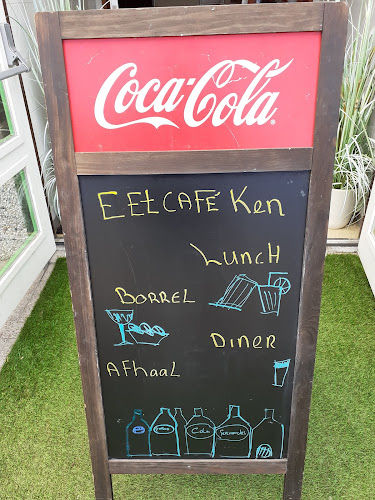 Coca-Cola
EEtCAFÉ Ken
LUNCH
BORREL
DINER
AFHaaL
Cola